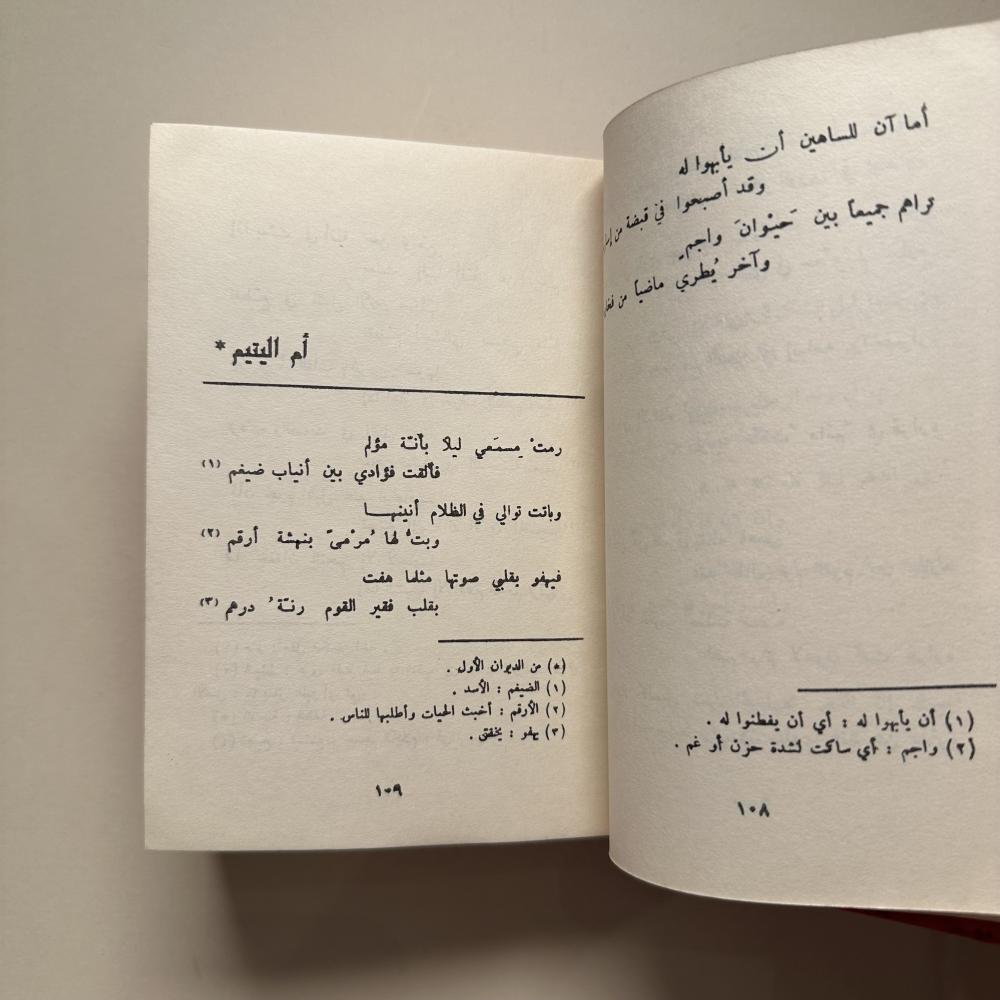 أما آن للساهين أن يأبهوا له
وقد أصبحوا في قبضة من
تراهم جميعاً بين حَيْوانَ واجمٍ
وآخر يُطري ماضياً من
(١) أن يأبهوا له : أي أن يفطنوا له .
(٢) واجم : أي ساكت لشدة حزن أو غم .
١٠٨
أم اليتيم *
رمتْ مِسمَعي ليلاً بأنّة مؤلم
فألقت فؤادي بين أنياب ضيغم (١)
وباتت توالي في الظلام أنينهــا
وبتُّ لها مُرْمىً بنهشة أرقم (٢)
فيهفو بقلبي صوتها مثلما هفت
بقلب فقير القوم رنّةُ درهم (٣)
(*) من الديوان الأول .
(١) الضيغم : الأسد .
(٢) الأرقم : أخبث الحيات وأطلبها للناس .
(٣) يهفو : يخفق .
١٠٩